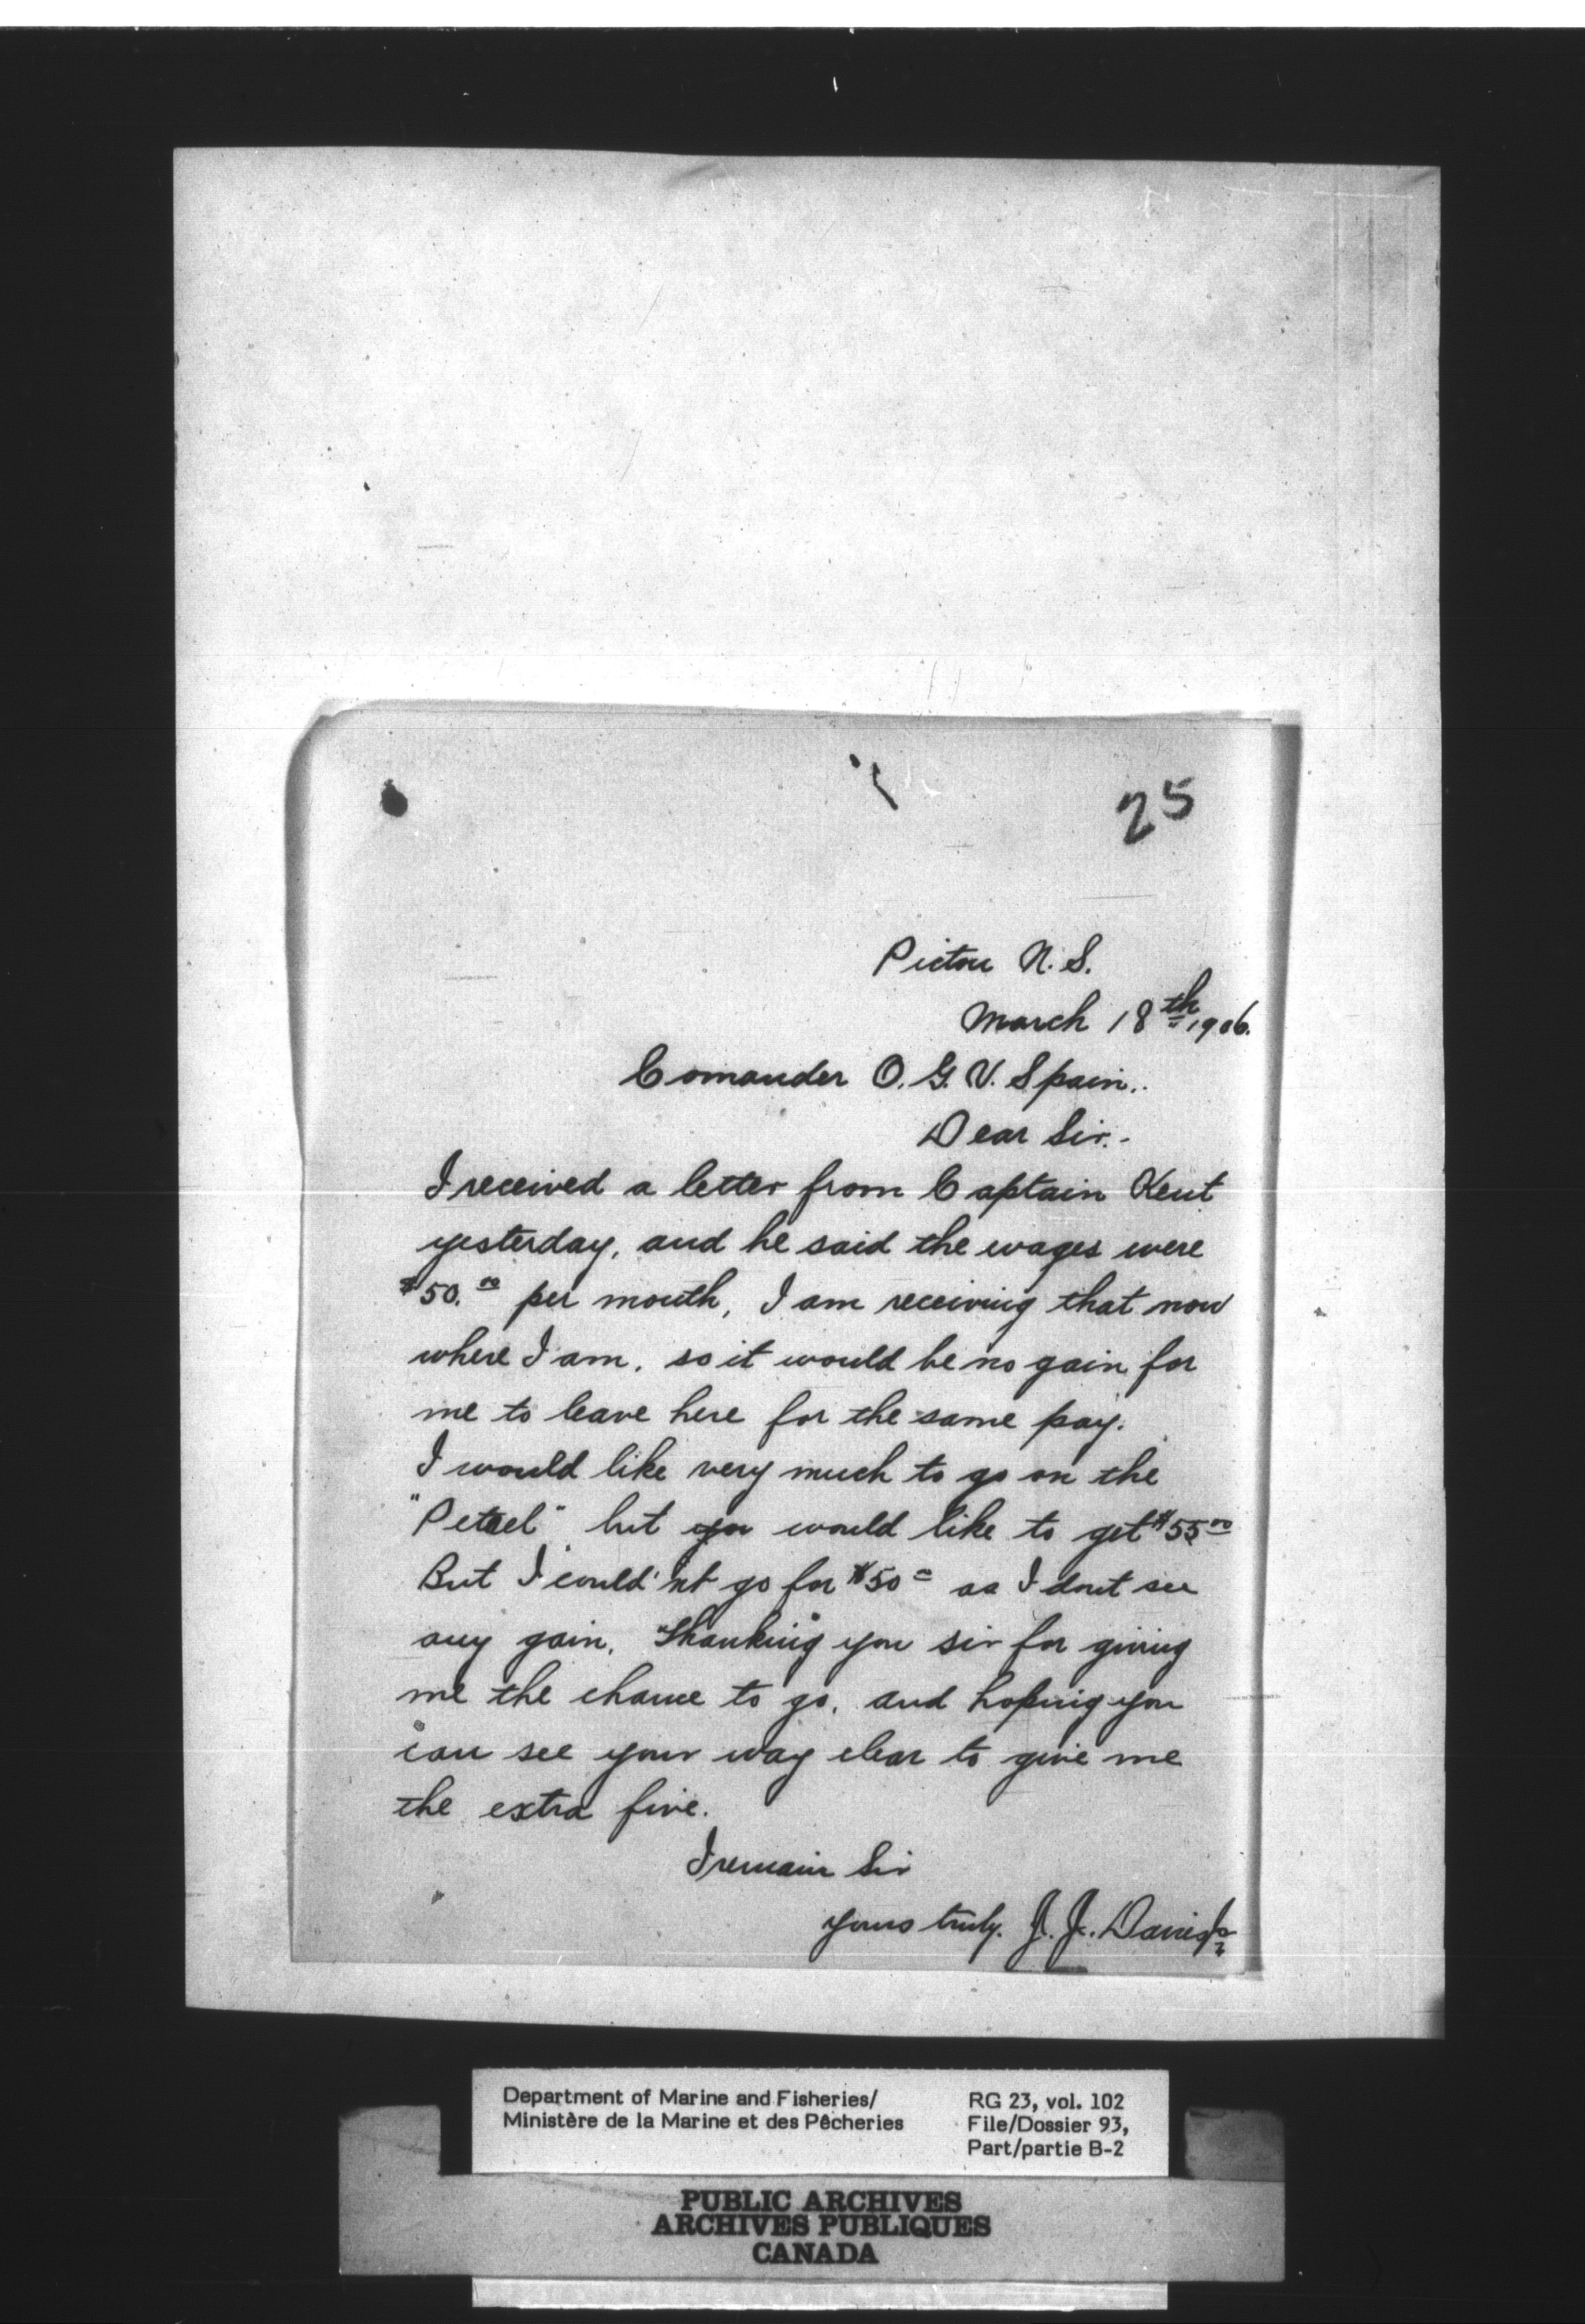 25
Pictou N.S.
March 18th 1906.
Comander O. G. V. Spain..
Dear Sir.-
I received a letter from Captain Kent
yesterday, and he said the wages were
$50.00 per month, I am receiving that now
where I am, so it would be no gain for
me to leave here for the same pay.
I would like very much to go on the
"Petrel" but you would like to get $55 00
But I could'nt go for $50 = as I dont see
any gain. Thanking you sir for giving
me the chance to go, and hoping you
can see your way clear to give me
the extra five.
I remain Sir
yours truly. J. J. Davis
Department of Marine and Fisheries/
Ministère de la Marine et des Pêcheries
RG 23, vol. 102
File/Dossier 93,
Part/partie B-2
PUBLIC ARCHIVES
ARCHIVES PUBLIQUES
CANADA